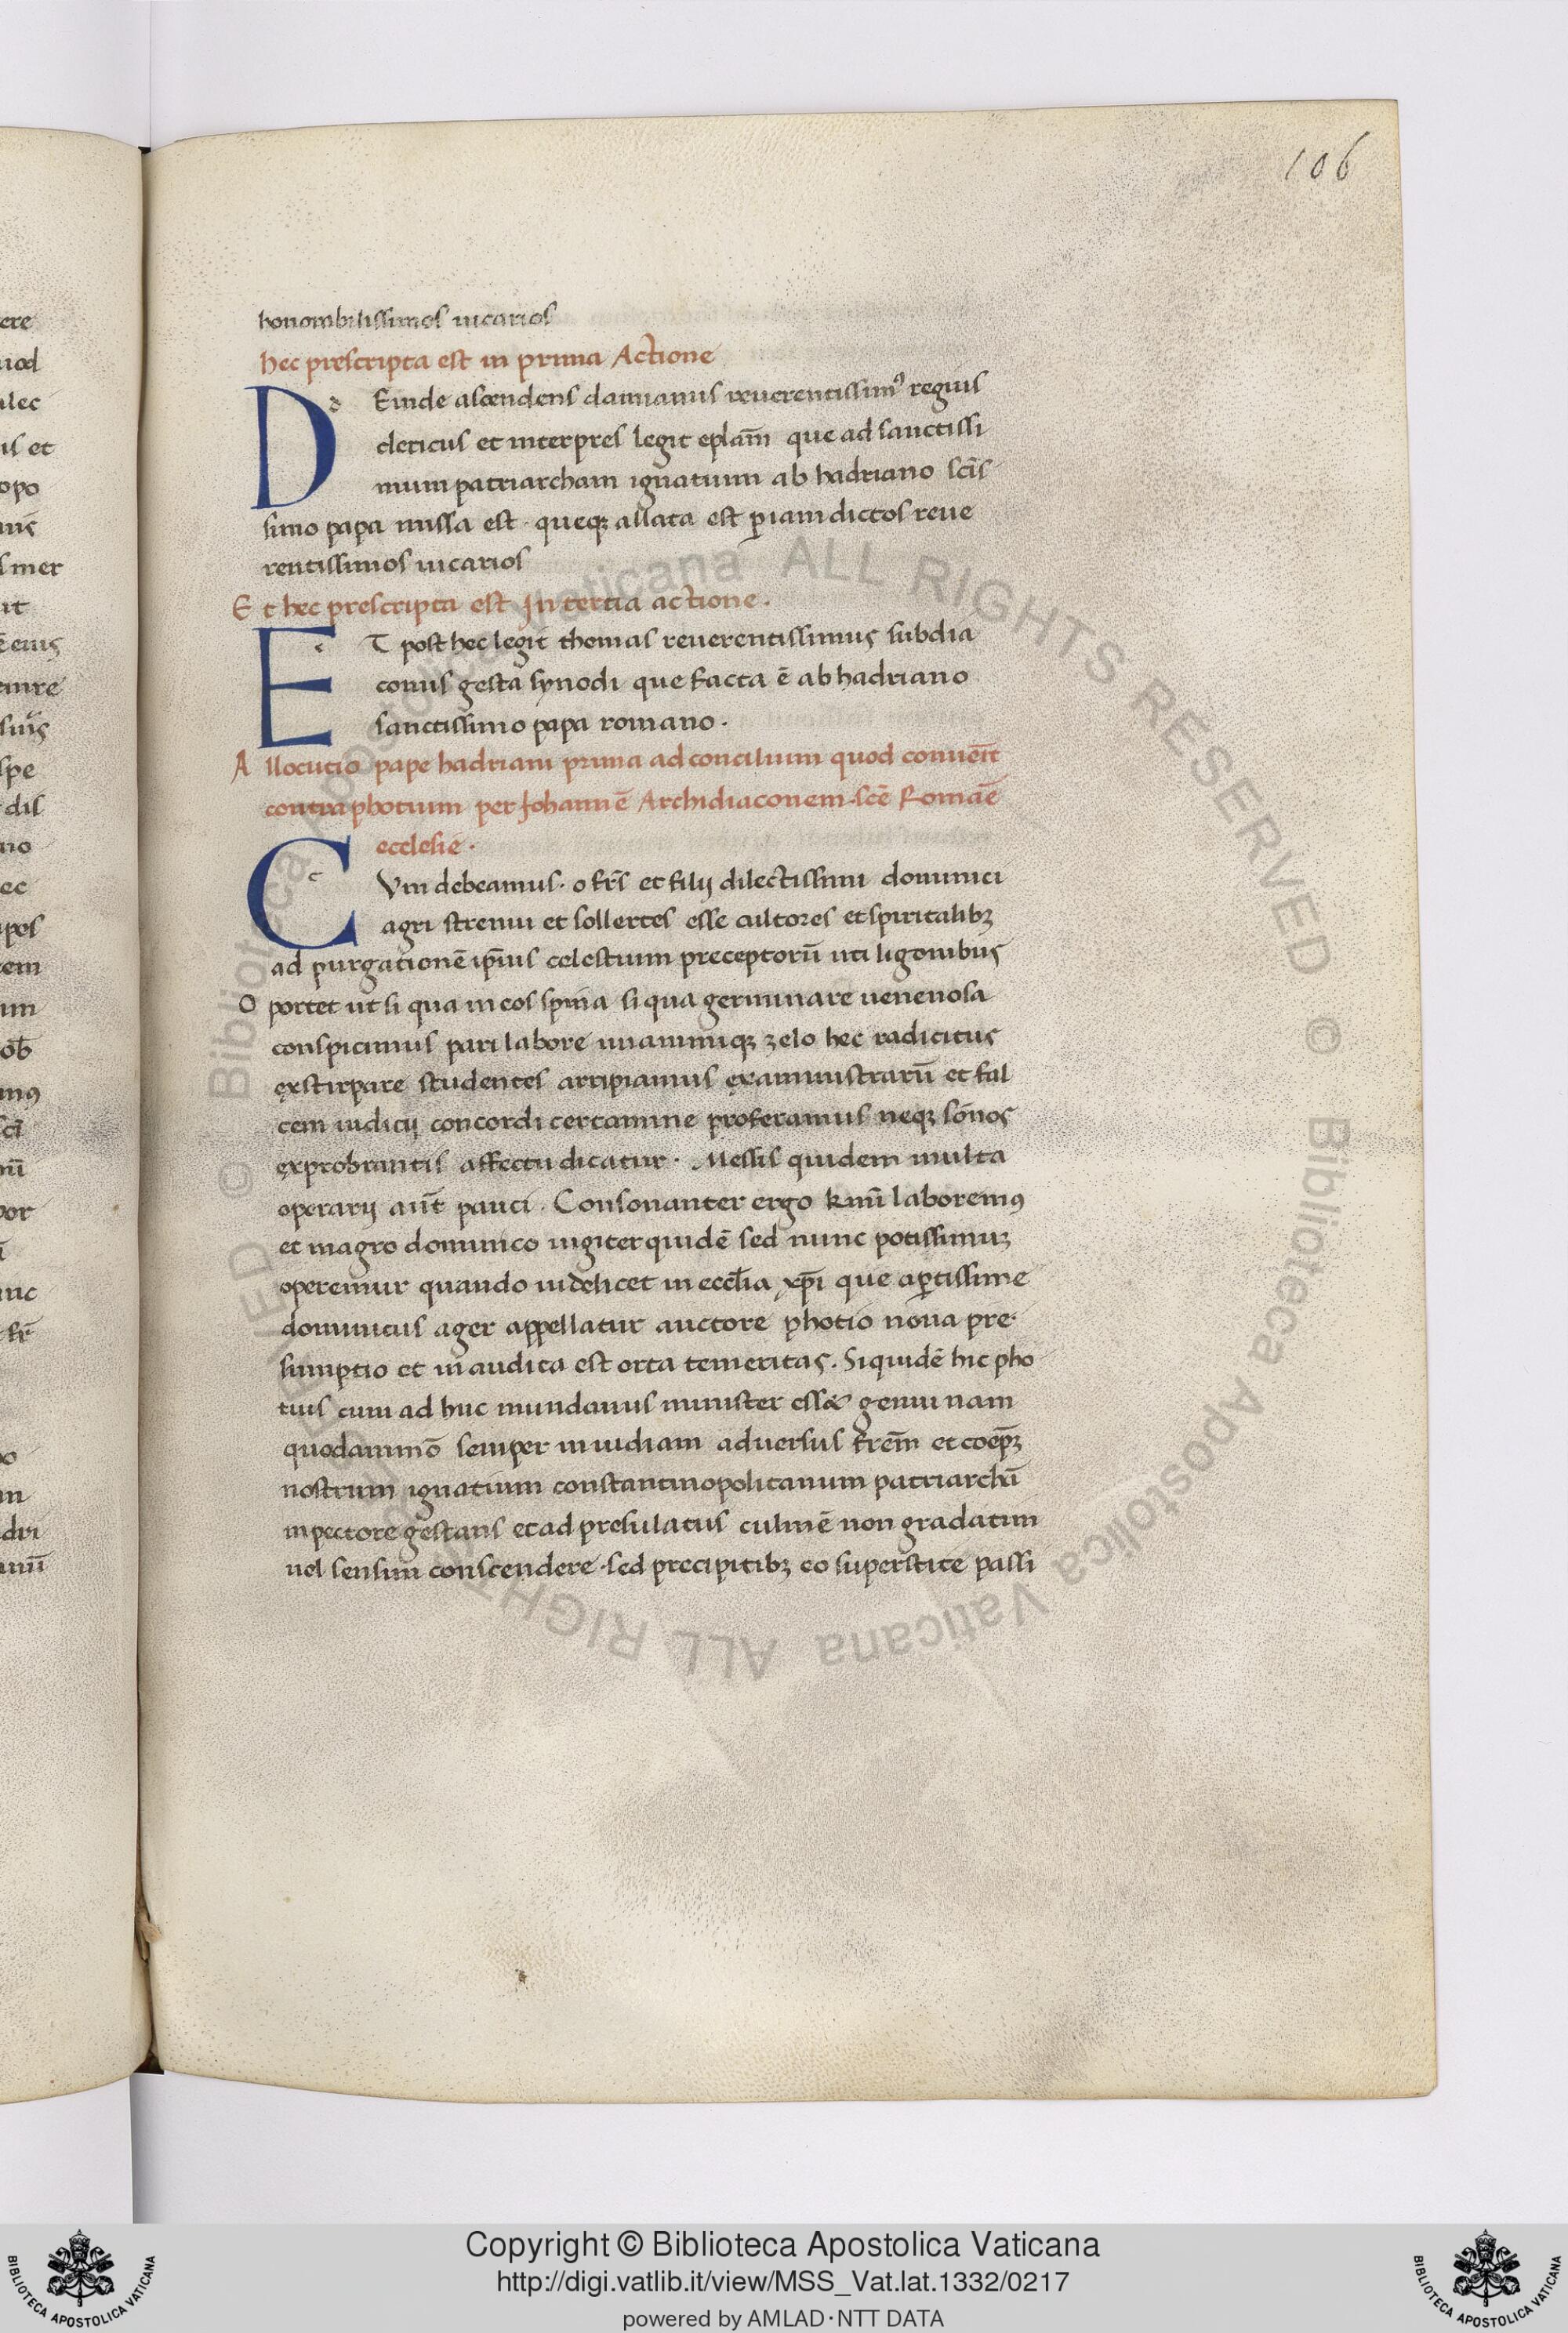 106
honorabilissimos uicarios
hec prescripta est in prima Actione
D d Einde ascendens damianus reuerentissimꝰ regius
clericus et interpres legit eplam̄ que ad sanctissi
mum patriarcham ignatium ab hadriano scis̄
simo papa missa est · queqꝫ allata est ꝑ iam dictos reue
rentissimos uicarios
Et hec prescripta est In tercia actione ·
E e T post hec legit thomas reuerentissimus subdia
conus gesta synodi que facta ē ab hadriano
sanctissimo papa romano ·
Allocutio pape hadriani prima ad concilium quod conuēit
contra photium per Johannē Archidiaconem scē Romāe
ecclesie ·
C c Vm debeamus · o fr̄s et filij dilectissimi dominici
agri strenui et sollertes esse cultores et spiritalibꝫ
ad purgationē ip̄ius celestium preceptorū uti ligonibus
Oportet ut si qua in eos spina si qua germinare uenenosa
conspicimus pari labore unanimiqꝫ zelo hec radicitus
ęxstirpare studentes arripiamus ęxaministrarū et fal
cem iudicij concordi certamine proferamus neqꝫ sōnos
ęxprobrantis affectu dicatur · Messis quidem multa
operarij aut̄ pauci · Consonanter ergo kmī laboremꝰ
et in agro dominico iugiter quidē sed nunc potissimuꝫ
operemur quando uidelicet in eccl̄ia xp̄i que aꝑtissime
dominicus ager appellatur auctore photio noua pre·
sumptio et inaudita est orta temeritas. Siquidē hic pho
tius cum ad huc mundanus minister ess& geminam
quodammō semper inuidiam aduersus frēm et coep̄ꝫ
nostrum ignatium constantinopolitanum patriarchā
in pectore gestans et ad presulatus culmē non gradatim
uel sensim conscendere · sed precipitibꝫ eo superstite passi
ere
uod
alec
us et
opo
s mer
ut
spe
dis
no
ec
pos
rem
um
por
nc
dri
© Biblioteca Apostolica Vaticana ALL RIGHTS RESERVED © Biblioteca Apostolica Vaticana ALL RIGHTS RESERVED
BIBLIOTECA APOSTOLICA VATICANA
Copyright © Biblioteca Apostolica Vaticana
http://digi.vatlib.it/view/MSS_Vat.lat.1332/0217
powered by AMLAD·NTT DATA
BIBLIOTECA APOSTOLICA VATICANA